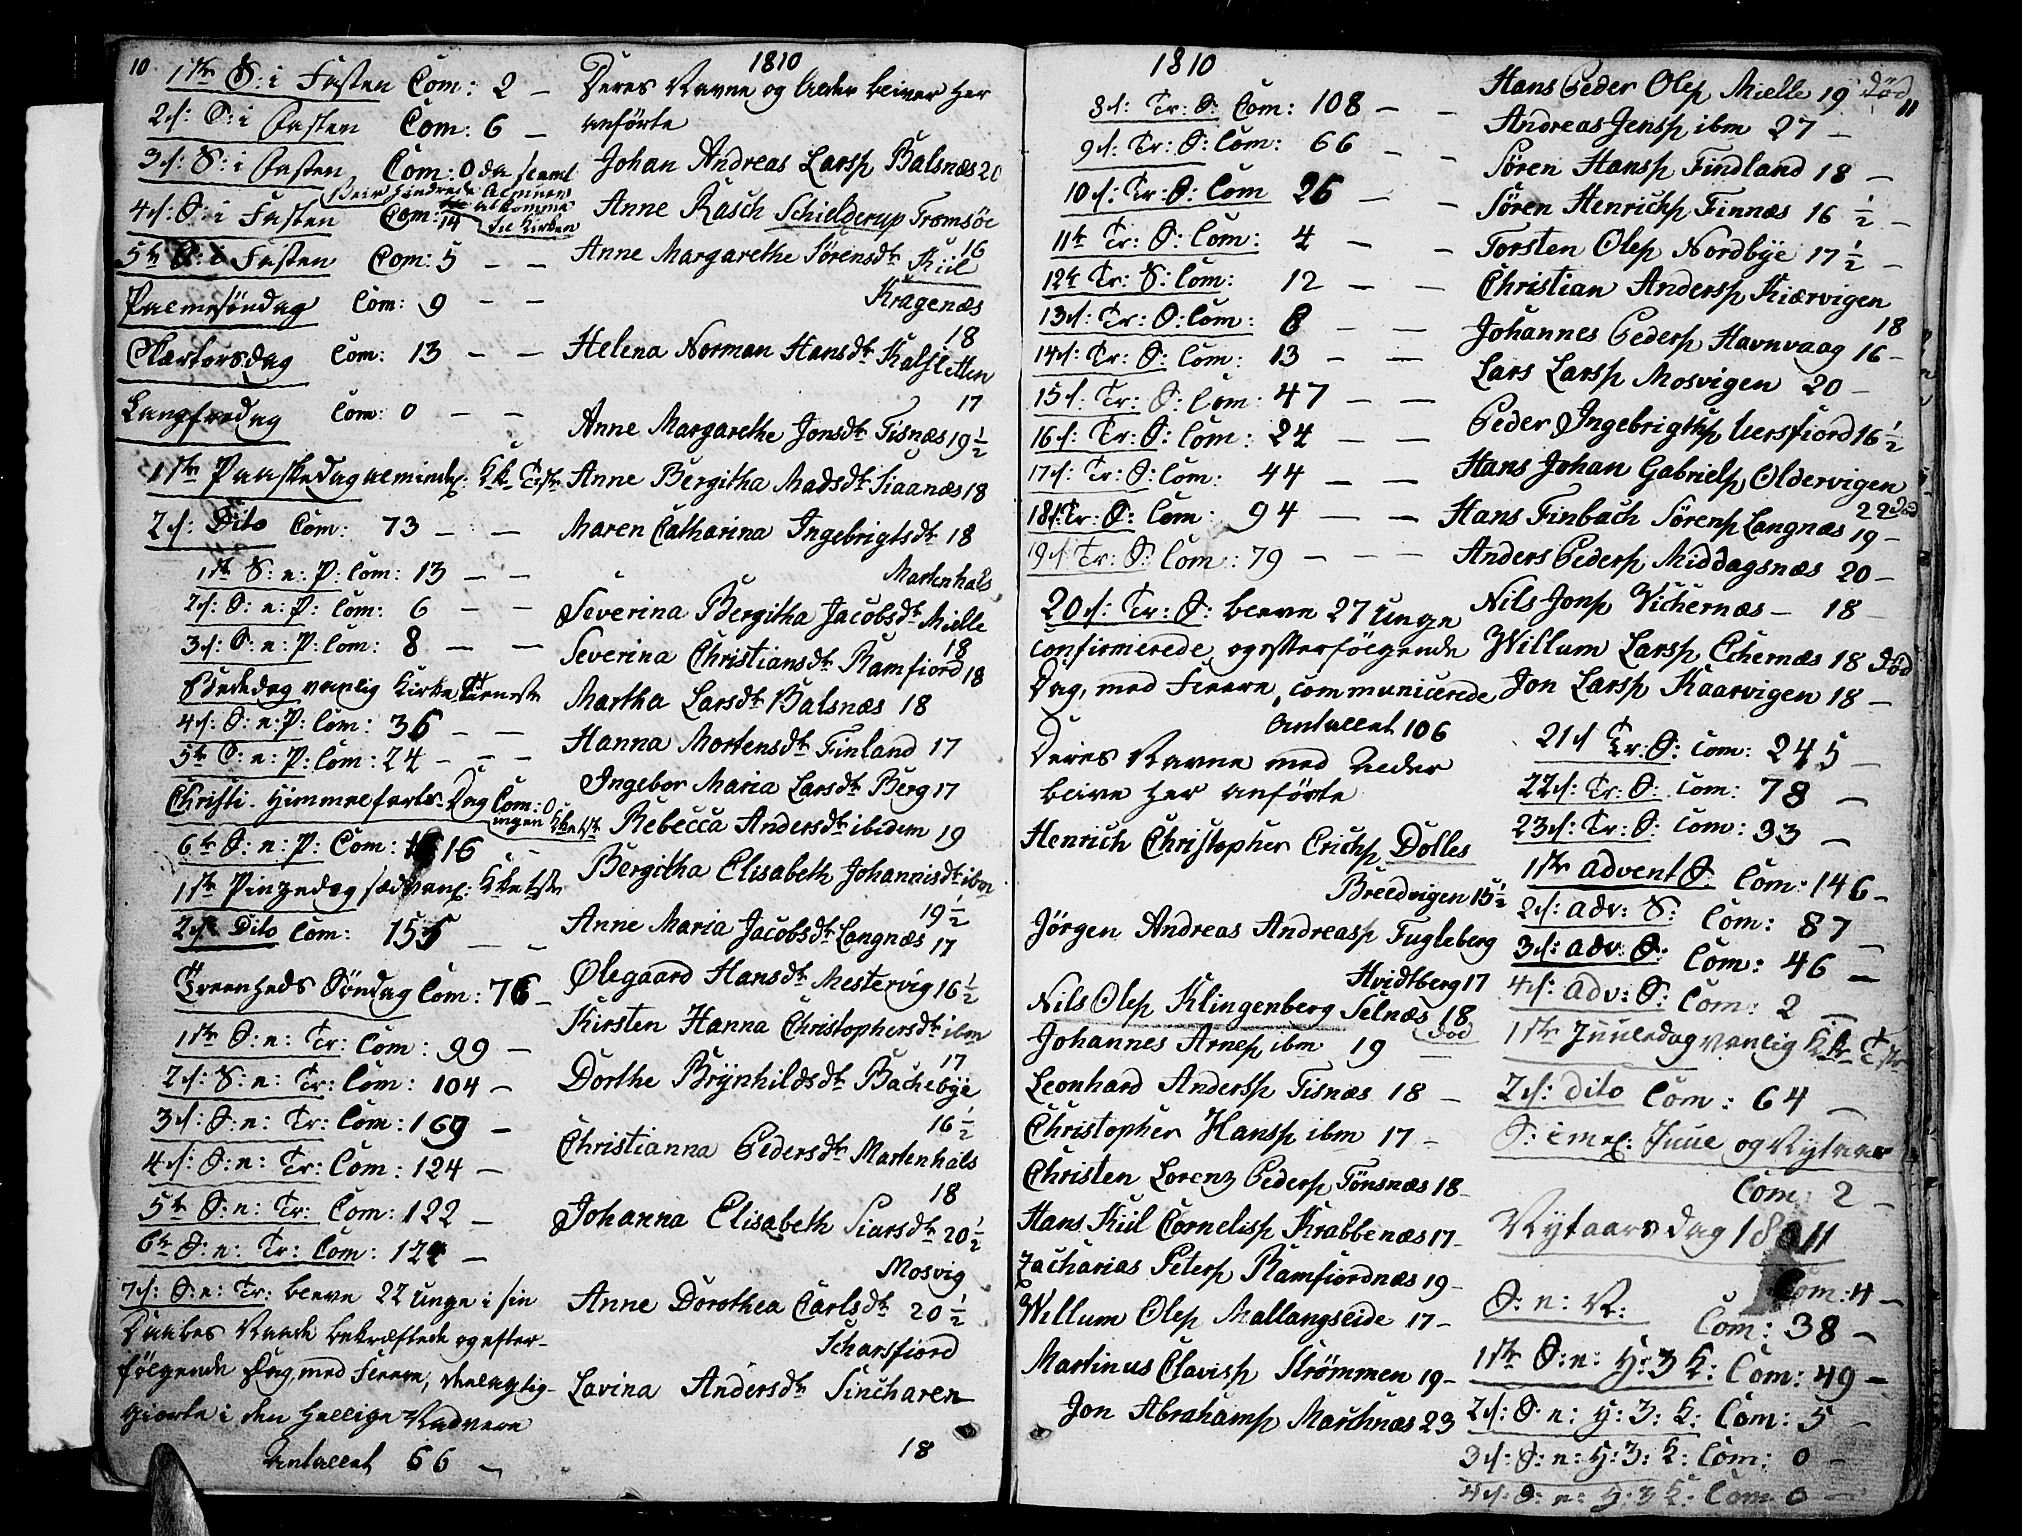 10
1810
1ste S: i Fasten Com: 2 —
2d: S: i Fasten Com: 6 —
3d: S: i Fasten Com: 0 da
hindrede
at komme
til Kirken
4d: S: i Fasten Com: 14
5te S: i Fasten Com: 5 — —
Palmesöndag Com: 9 — —
Skærtorsdag Com: 13 — —
Langfredag Com: 0 — —
1ste Paaskedag
2d: Dito Com: 73 — —
1ste S: e: P: Com: 13 — —
2d: S: e: P: Com: 6 — —
3d: S: e: P: Com: 8 — —
Bededag vanlig Kirke Tieneste
4d: S: e: P: Com: 36 — —
5te S: e: P: Com: 24 — — —
Christi Himmelfarts-Dag Com: 0
ingen
6te S: e: P: Com: 16 —
1ste Pinzedag
2d: Dito Com: 155 — —
Treenheds Söndag Com: 76 —
1ste S: e: Tr: Com: 99 —
2d: S: e: Tr: Com: 104 —
3d: S: e: Tr: Com: 169 —
4d: S: e: Tr: Com: 124 —
5te S: e: Tr: Com: 122 —
6te S: e: Tr: Com: 124 —
7d: S: e: Tr: bleve 22 unge i sin
Daabes Naade bekræftede og efter-
fölgende Dag, med Fleere, deelagtig-
giorte i den Hellige Nadvere
Antallet 66 —
Deres Navne og Alder bliver her
anförte
Johan Andreas Larsp Balsnæs 20
Anne Rasch Schielderup Tromsöe
16
Anne Margarethe Sörensdtr Kiil
Kragenæs
18
Helena Norman Hansdtr Kalsletten
17
Anne Margarethe Jonsdtr Tisnæs 19 1/2
Anne Bergitha Madsdtr Siaanæs 18
Maren Catharina Ingebrigtsdtr 18
Martenhals
Severina Bergitha Jacobsdtr Mielle
18
Severina Christiansdtr Ramfiord 18
Martha Larsdtr Balsnæs 18
Hanna Mortensdtr Finland 17
Ingebor Maria Larsdtr Berg 17
Rebecca Andersdtr ibidem 19
Bergitha Elisabeth Johannisdtr ibm
19 1/2
Anne Maria Jacobsdtr Langnæs 17
Ølegaard Hansdtr Mestervig 16 1/2
Kirsten Hanna Christophersdtr ibm
17
Dorthe Brynhildsdtr Bachebÿe
16 1/2
Christianna Pedersdtr Martenhals
18
Johanna Elisabeth Siarsdtr 20 1/2
Mosvig
Anne Dorothea Carlsdtr 20 1/2
Scharsfiord
Lavina Andersdtr Sincharen
18
1810
11
8d: Tr: S: Com: 108 — —
9d: Tr: S: Com: 66 — —
10d: Tr: S: Com 26 — —
11te Tr: S: Com: 4 — —
12te Tr: S: Com: 12 — —
13d: Tr: S: Com: 8 — —
14d: Tr: S: Com: 13 — —
15d: Tr: S: Com: 47 — —
16d: Tr: S: Com: 24 — —
17d: Tr: S: Com: 44 — —
18d: Tr: S: Com: 94 — —
19d: Tr: S: Com: 79 — — —
20d: Tr: S: bleve 27 unge
confirmerede og efterfölgende
Dag, med Fleere, communicerede
Antallet 106
Deres Navne med Alder
blive her anförte
Henrich Christopher Erichp Dolles
Breedvigen 15 1/2
Jörgen Andreas Andreasp Fugleberg
Hvidtberg 17
Nils Olep Klingenberg Selnæs 18
död
Johannes Arnep ibm 19 —
Leonhard Andersp Tisnæs 18 —
Christopher Hansp ibm 17 —
Christen Lorenz Pedersp Tönsnæs 18 —
Hans Kiil Cornelisp Krabbenæs 17 —
Zacharias Petersp Ramfiordnæs 19 —
Willum Olep Mallangseide 17 —
Martinus Clavisp Strömmen 19 —
Jon Abrahamsp Marchnæs 23
Hans Peder Olep Mielle 19 död
Andreas Jensp ibm 27 —
Sören Hansp Findland 18 —
Sören Henrichp Finnæs 16 1/2 —
Torsten Olep Nordbÿe 17 1/2 —
Christian Andersp Kiærvigen
18
Johannes Pedersp Havnvaag 16 —
Lars Larsp Mosvigen 20 —
Peder Ingebrigtsp Uersfiord 16 1/2
Hans Johan Gabrielsp Oldervigen
22 död
Hans Finbach Sörensp Langnæs 19 —
Anders Pedersp Middagsnæs 20 —
Nils Jonsp Vichernæs — 18 —
Willum Larsp Echernæs 18 död
Jon Larsp Kaarvigen 18 —
21d Tr: S: Com: 245 —
22d: Tr: S: Com: 78 —
23d: Tr: S: Com: 93 —
1ste Advent S: Com: 146 —
2d: Adv: S: Com: 87 —
3d: Adv: S: Com: 46 —
4d: Adv: S: Com: 2 —
1ste Juuledag vanlig
2d: Dito Com: 64 —
S: imel: Juul og Nytaar
Com: 2 —
Nytaarsdag 1811
Com: 4 —
S: e: N: Com: 38 —
1ste S: e: H: 3 K: Com: 49 —
2d: S: e: H: 3: K: Com: 5 —
3d: S: e: H: 3: K: Com: 0 —
4d: S: e: H: 3 K: Com: 0 —